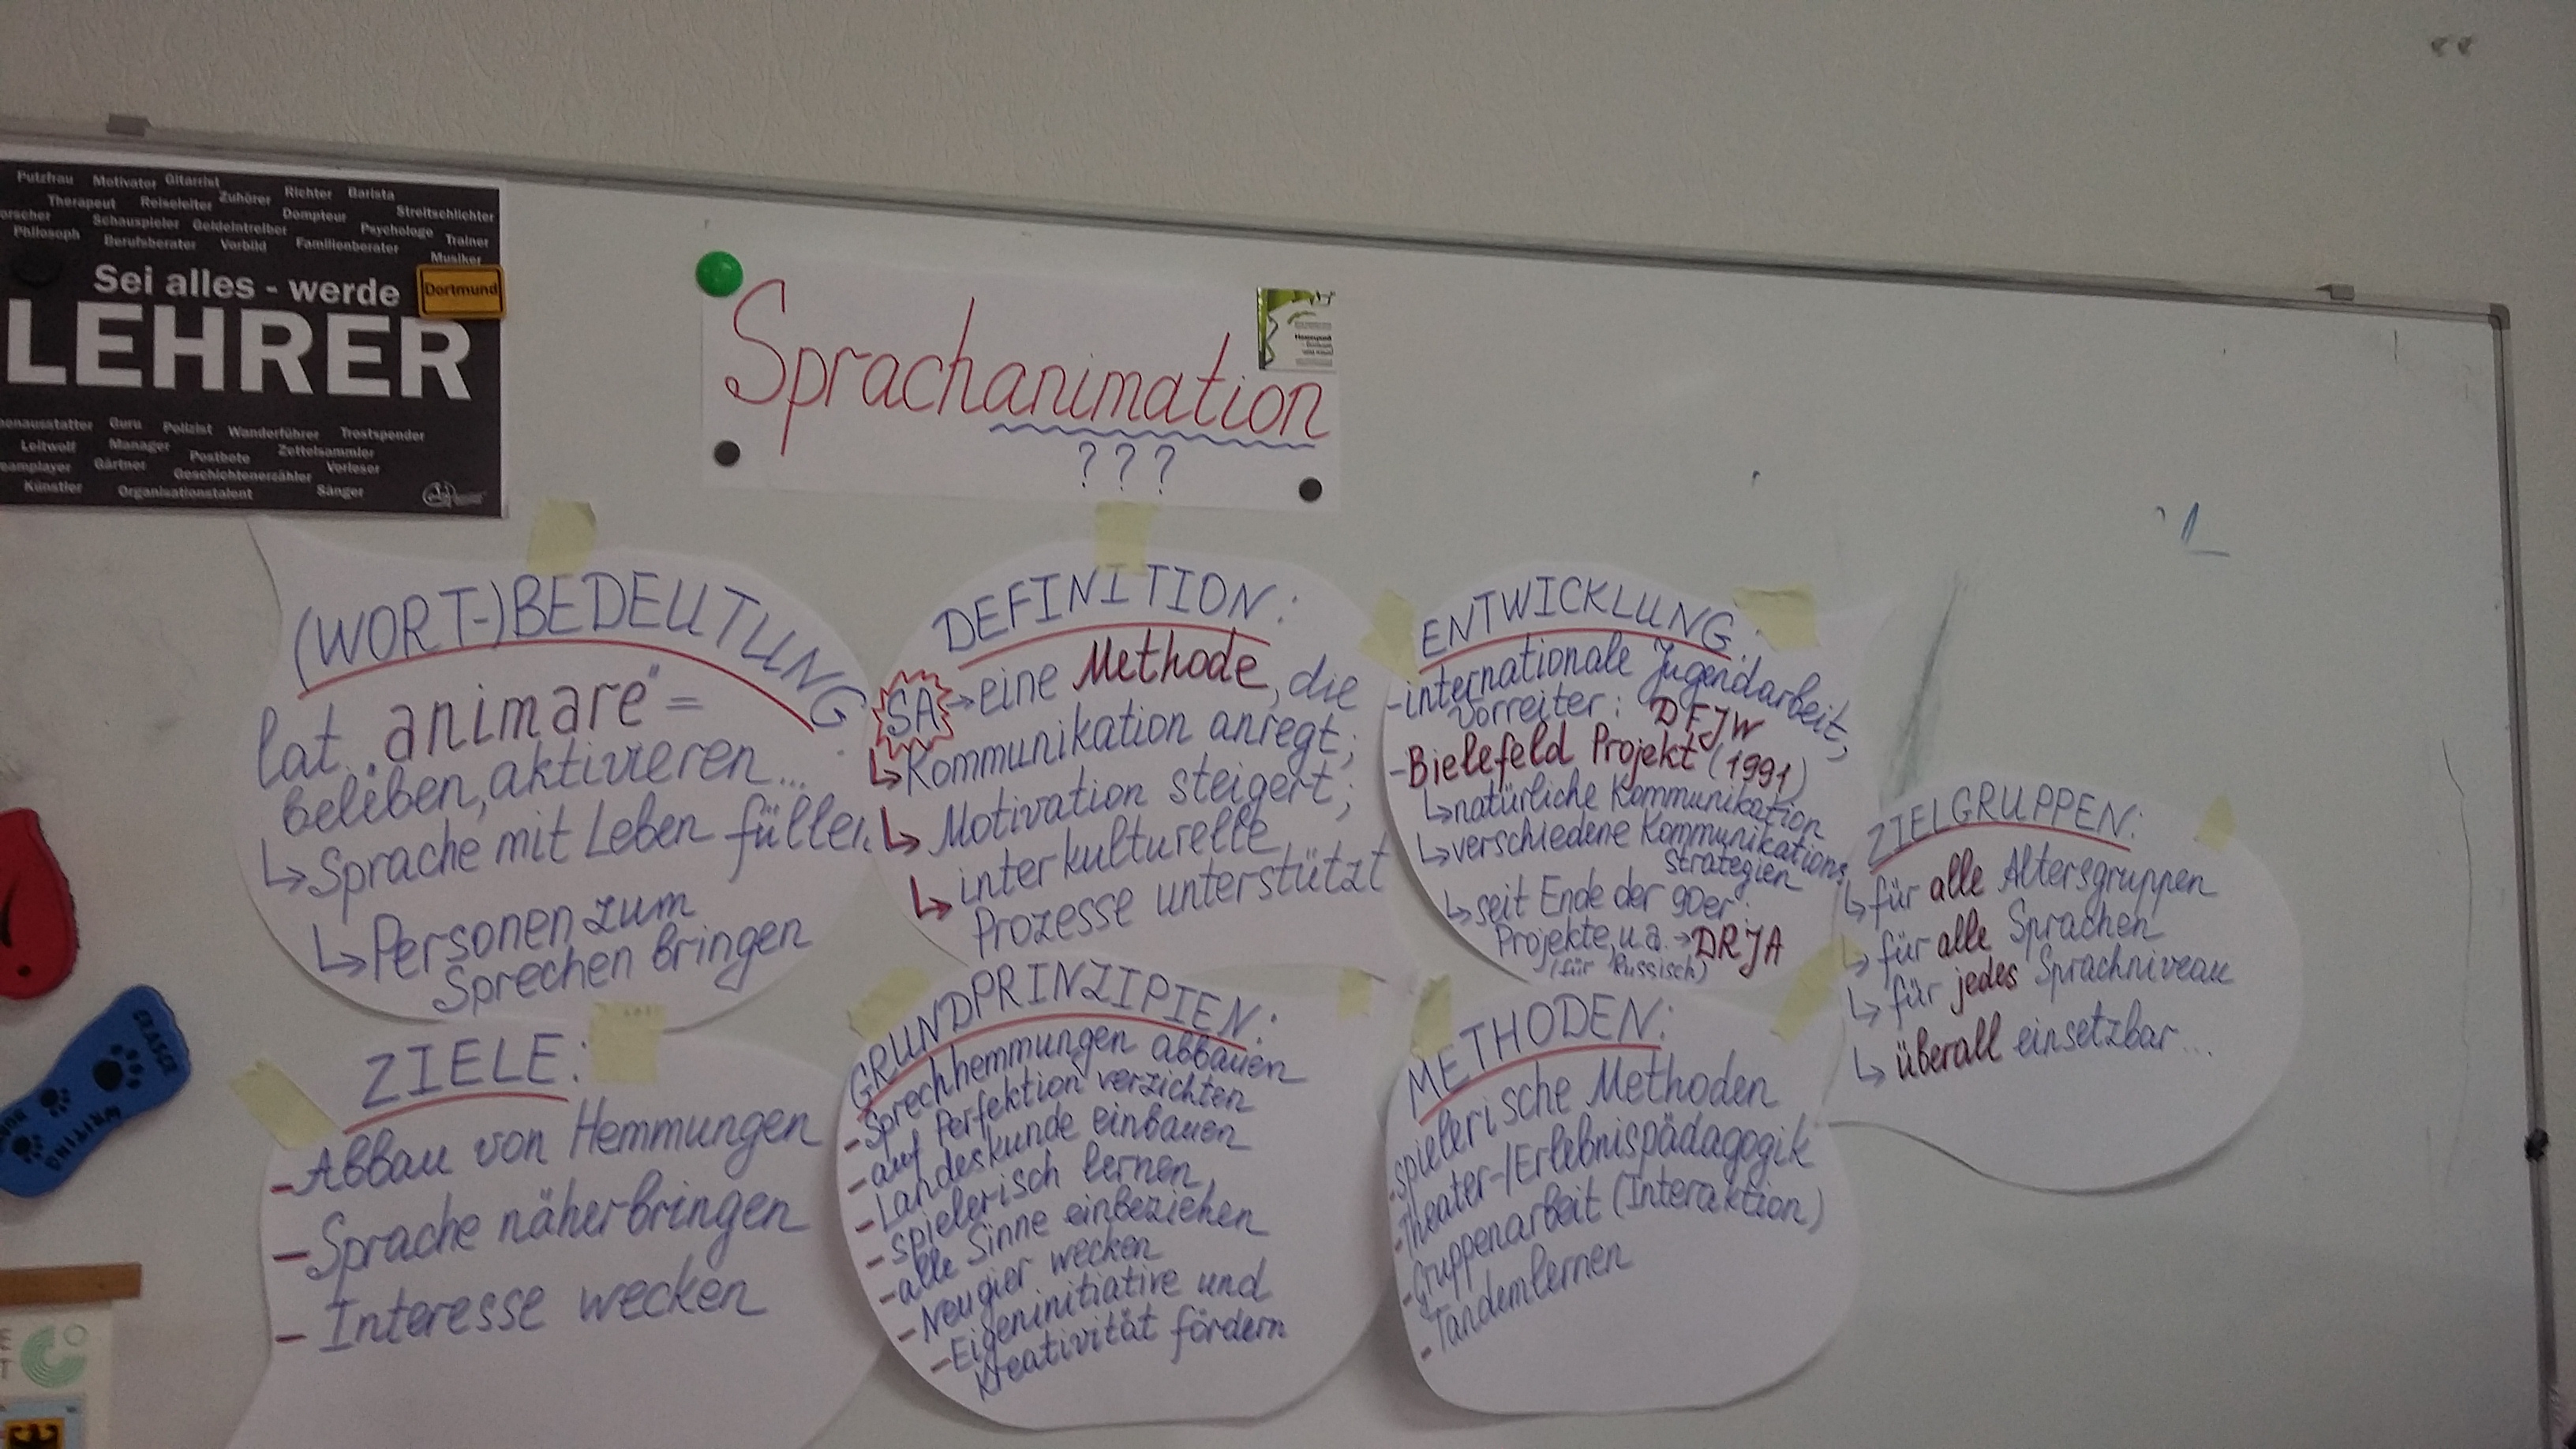 Putzfrau Motivator Gitarrist Zuhörer Richter Barista
Therapeut Reiseleiter Dompteur Streitschlichter
orscher Schauspieler Geldeintreiber Psychologe
Philosoph Berufsberater Vorbild Familienberater Trainer
Musiker
Sei alles - werde
Dortmund
LEHRER
enausstatter Guru Polizist Wanderführer Trostspender
Leitwolf Manager Postbote Zettelsammler
eamplayer Gärtner Geschichtenerzähler Vorleser
Künstler Organisationstalent Sänger
Sprachanimation
???
(WORT-)BEDEUTUNG:
lat. „animare“ =
beleben, aktivieren...
↳ Sprache mit Leben füllen
↳ Personen zum
Sprechen bringen
DEFINITION:
SA → eine Methode, die
↳ Kommunikation anregt;
↳ Motivation steigert;
↳ interkulturelle
Prozesse unterstützt
ENTWICKLUNG:
- internationale Jugendarbeit,
Vorreiter: DFJW
- Bielefeld Projekt (1991)
↳ natürliche Kommunikation
↳ verschiedene Kommunikations
Strategien
↳ seit Ende der 90er:
Projekte, u.a. → DRJA
(für Russisch)
ZIELGRUPPEN:
↳ für alle Altersgruppen
↳ für alle Sprachen
↳ für jedes Sprachniveau
↳ überall einsetzbar...
ZIELE:
- Abbau von Hemmungen
- Sprache näherbringen
- Interesse wecken
GRUNDPRINZIPIEN:
- Sprechhemmungen abbauen
- auf Perfektion verzichten
- Landeskunde einbauen
- spielerisch lernen,
- alle Sinne einbeziehen
- Neugier wecken
- Eigeninitiative und
Kreativität fördern
METHODEN:
- spielerische Methoden
- Theater-/Erlebnispädagogik
- Gruppenarbeit (Interaktion)
- Tandemlernen
CLASSE
WRITING